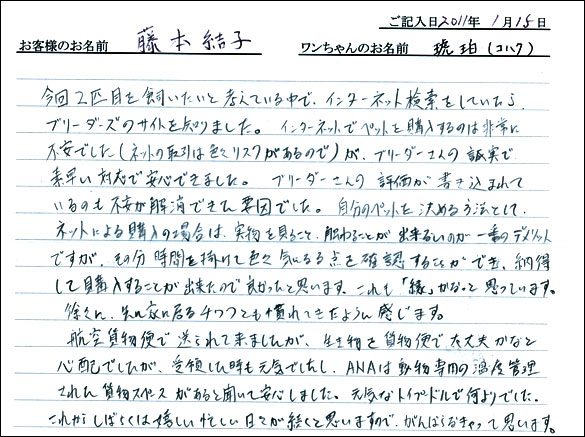 ご記入日2011年 1月15日
お客様のお名前 藤本結子 ワンちゃんのお名前 琥珀(コハク)
今回2匹目を飼いたいと考えている中で、インターネット検索をしていたら、
ブリーダーズのサイトを知りました。インターネットでペットを購入するのは非常に
不安でした(ネットの取引は色々リスクがあるので)が、ブリーダーさんの誠実で
素早い対応で安心できました。ブリーダーさんの評価が書き込まれて
いるのも不安が解消できた要因でした。自分のペットを決める方法として、
ネットによる購入の場合は、実物を見ること、触わることが出来ないのが一番のデメリット
ですが、その分時間を掛けて色々気になる点を確認することができ、納得
して購入することが出来たので良かったと思います。これも「縁」かなって思っています。
徐々に、我が家に居る4つつとも慣れてきたように感じます。
航空貨物便で送られて来ましたが、生き物を貨物便で大丈夫かなと
心配でしたが、受領した時も元気でしたし、ANAは動物専用の温度管理
された貨物スペースがあると聞いて安心しました。元気なトイプードルで何よりでした。
これからしばらくは嬉しい忙しい日々が続くと思いますので、がんばらなきゃって思います。